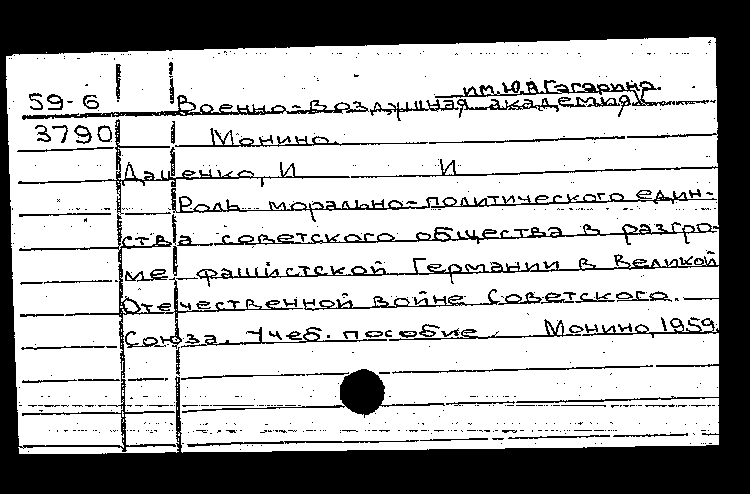 им. Ю.А. Гагарина.
59-6 Военно-воздушная академия
3790 Монино.
Даценко, И И
Роль морально-политического един-
ства советского общества в разгро-
ме фашистской Германии в Великой
Отечественной войне Советского
Союза. Учеб. пособие. Монино, 1959.